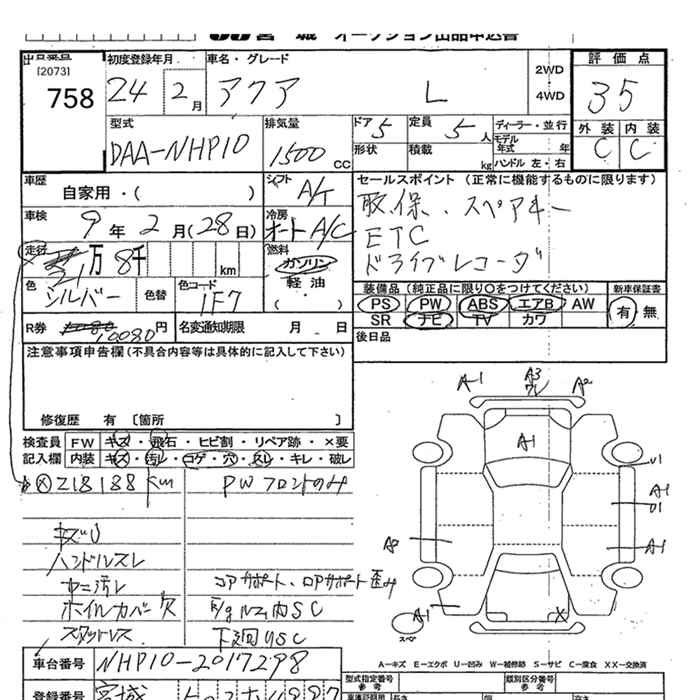 宮 城 オークション出品申込書
出品番号 [2073] 758
初度登録年月 24 2月
車名・グレード アクア L
2WD ・ 4WD
評価点 35
型式 DAA-NHP10
排気量 1500 CC
ドア 5 形状
定員 5人 積載 kg
ディーラー・並行 モデル年式 年 ハンドル 左・右
外装 C 内装 C
車歴 自家用・( )
シフト A/T
セールスポイント (正常に機能するものに限ります)
取、保、スペアキー
ETC
ドライブレコーダ
車検 9年2月(28日)
冷房 オートA/C
走行 21万8千 km
燃料 ガソリン 軽油・( )
色 シルバー 色替 色コード 1F7
装備品 (純正品に限り○をつけてください) 新車保証書
PS PW ABS エアB AW 有・無
SR ナビ TV カワ
R券 10080円 名変通知期限 月 日
後日品
注意事項申告欄 (不具合内容等は具体的に記入して下さい)
修復歴 有 〔箇所 〕
検査員 FW キズ・飛石・ヒビ割・リペア跡・×要
記入欄 内装 キズ・汚レ・コゲ・穴・スレ・キレ・破レ
218188 km PWフロントのみ
キズU
ハンドルスレ
汚レ コアサポート、ロアサポート歪み
ホイルカバー欠 内SC
スタットレス 下廻りSC
A-1 A3 ワレ A2
A-1
U1
A-1 U1
A2 A-1
A-1 X
スペア
A-キズ E-エクボ U-凹み W-補修跡 S-サビ C-腐食 XX-交換済
車台番号 NHP10-2017298
型式指定番号 参考 類別区分番号 参考
登録番号 宮城
長さ 幅 高さ